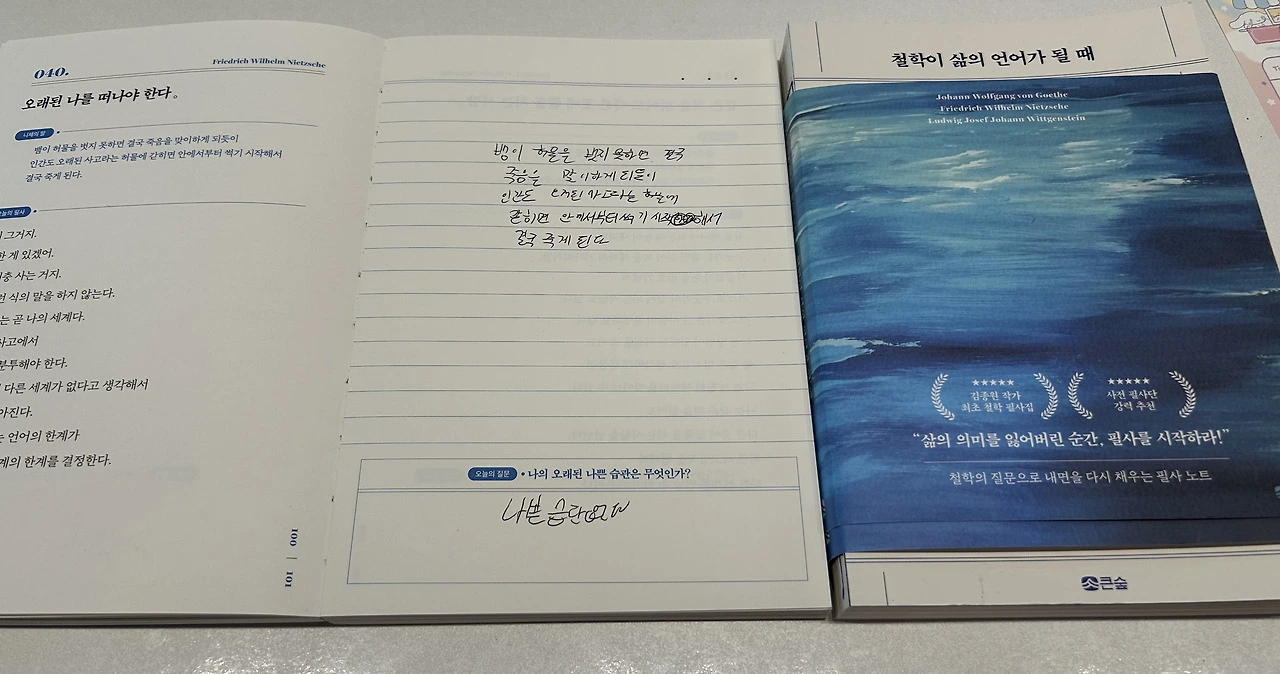 040.
Friedrich Wilhelm Nietzsche
오래된 나를 떠나야 한다。
니체의 말
뱀이 허물을 벗지 못하면 결국 죽음을 맞이하게 되듯이
인간도 오래된 사고라는 허물에 갇히면 안에서부터 썩기 시작해서
결국 죽게 된다.
오늘의 필사
그거지.
한 게 있겠어.
사는 거지.
식의 말을 하지 않는다.
는 곧 나의 세계다.
사고에서
분투해야 한다.
다른 세계가 없다고 생각해서
아진다.
는 언어의 한계가
계의 한계를 결정한다.
100 | 101
뱀이 허물을 벗지 못하면 결국
죽음을 맞이하게 되듯이
인간도 오래된 사고라는 허물에
갇히면 안에서부터 썩기 시작해서
결국 죽게 된다
오늘의 질문 • 나의 오래된 나쁜 습관은 무엇인가?
나쁜 습관
철학이 삶의 언어가 될 때
Johann Wolfgang von Goethe
Friedrich Wilhelm Nietzsche
Ludwig Josef Johann Wittgenstein
★★★★★
김종원 작가
최초 철학 필사집
★★★★★
사전 필사단
강력 추천
“삶의 의미를 잃어버린 순간, 필사를 시작하라!”
철학의 질문으로 내면을 다시 채우는 필사 노트
큰숲